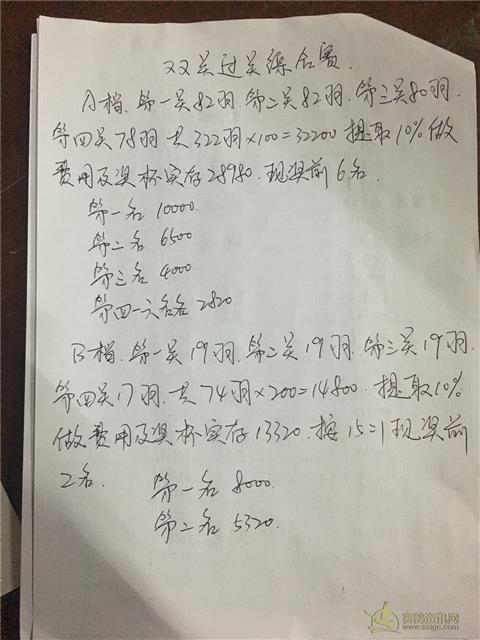 双关过关综合赛.
A档.第一关82羽.第二关82羽.第三关80羽.
第四关78羽.共322羽×100=32200 提取10%做
费用及奖杯实存28980.现奖前6名.
第一名 10000.
第二名 6500
第三名 4000
第四一六名各 2820
B档.第一关19羽.第二关19羽.第三关19羽.
第四关17羽.共74羽×200=14800.提取10%
做费用及奖杯实存13320.按15=1现奖前
2名.
第一名 8000.
第二名 5320.
赛鸽资讯网
www.saige.com